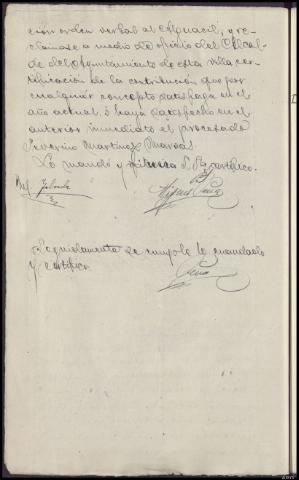 ción orden verbal al Alguacil, y re-
clamase a medio de oficio del Alcal-
de del Ayuntamiento de esta villa cer-
tificación de la contribución que por
cualquier concepto satisfaga en el
año actual, ó haya satisfecho en el
anterior inmediato el procesado
Severino Martinez
Lo mandó y firma S. Sª certifico.
Seguidamente se cumple lo mandado
y certifico